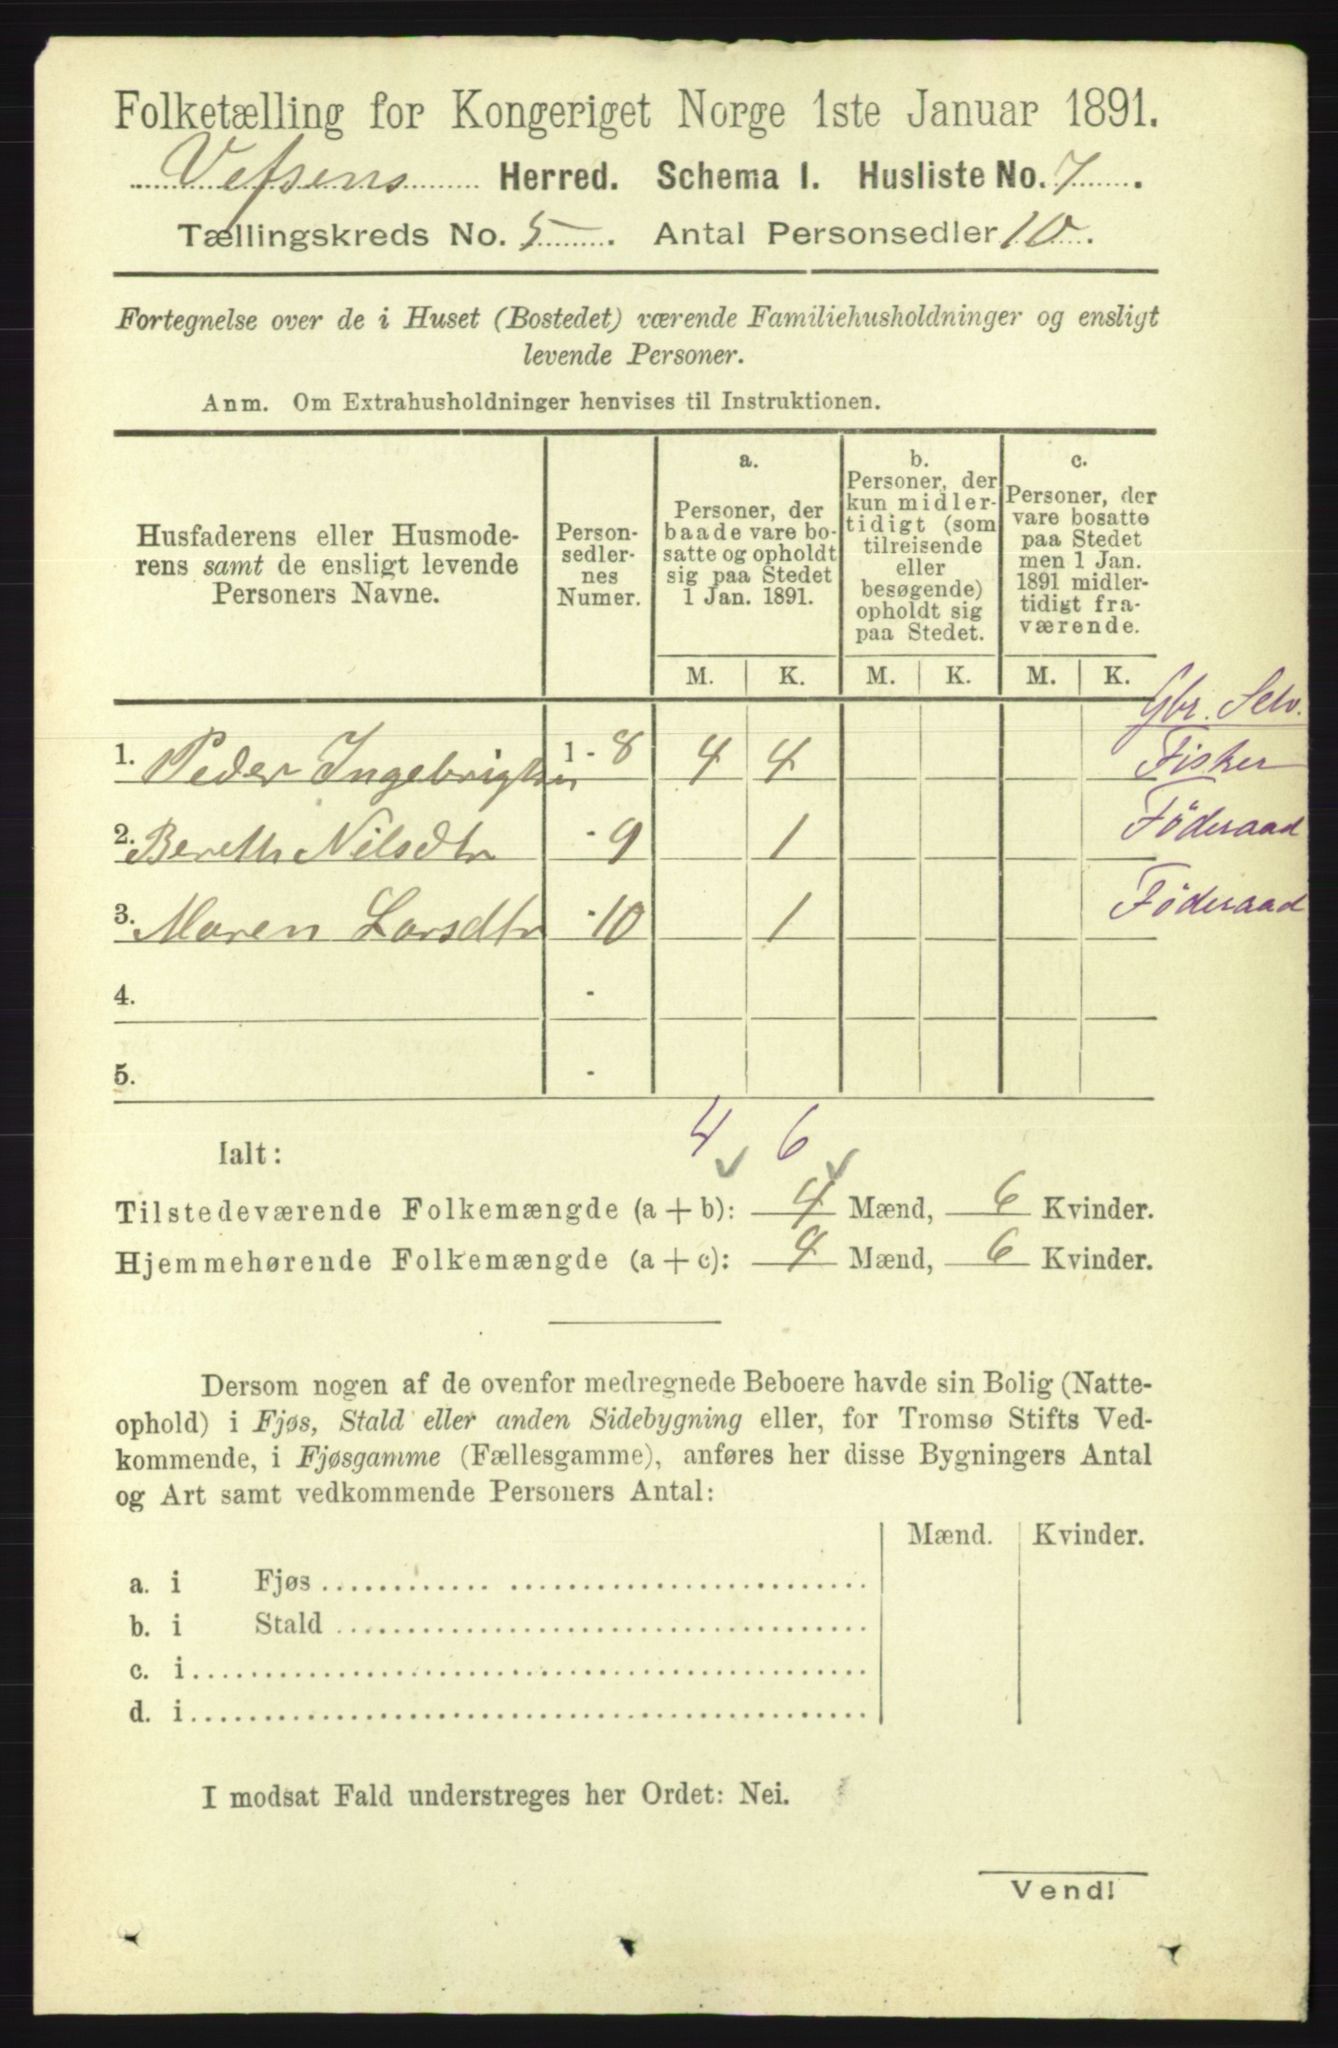 Folketælling for Kongeriget Norge 1ste Januar 1891.
Vefsens Herred. Schema I. Husliste No. 7.
Tællingskreds No. 5. Antal Personsedler 10.
Fortegnelse over de i Huset (Bostedet) værende Familiehusholdninger og ensligt
levende Personer.
Anm. Om Extrahusholdninger henvises til Instruktionen.
Husfaderens eller Husmode-
rens samt de ensligt levende
Personers Navne.
Person-
sedler-
nes
Numer.
a.
Personer, der
baade vare bo-
satte og opholdt
sig paa Stedet
1 Jan. 1891.
b.
Personer, der
kun midler-
tidigt (som
tilreisende
eller
besøgende)
opholdt sig
paa Stedet.
c.
Personer, der
vare bosatte
paa Stedet
men 1 Jan.
1891 midler-
tidigt fra-
værende.
M. K. M. K. M. K.
Gbr. Selv.
1. Peder Ingebrigtsen 1 - 8 4 4 Fisker
2. Bereth Nilsdtr - 9 1 Föderaad
3. Maren Larsdtr - 10 1 Föderaad
4. -
5. -
4 6
Ialt:
Tilstedeværende Folkemængde (a + b): 4 Mænd, 6 Kvinder.
Hjemmehørende Folkemængde (a + c): 4 Mænd, 6 Kvinder.
Dersom nogen af de ovenfor medregnede Beboere havde sin Bolig (Natte-
ophold) i Fjøs, Stald eller anden Sidebygning eller, for Tromsø Stifts Ved-
kommende, i Fjøsgamme (Fællesgamme), anføres her disse Bygningers Antal
og Art samt vedkommende Personers Antal:
Mænd. Kvinder.
a. i Fjøs
b. i Stald
c. i
d. i
I modsat Fald understreges her Ordet: Nei.
Vend!